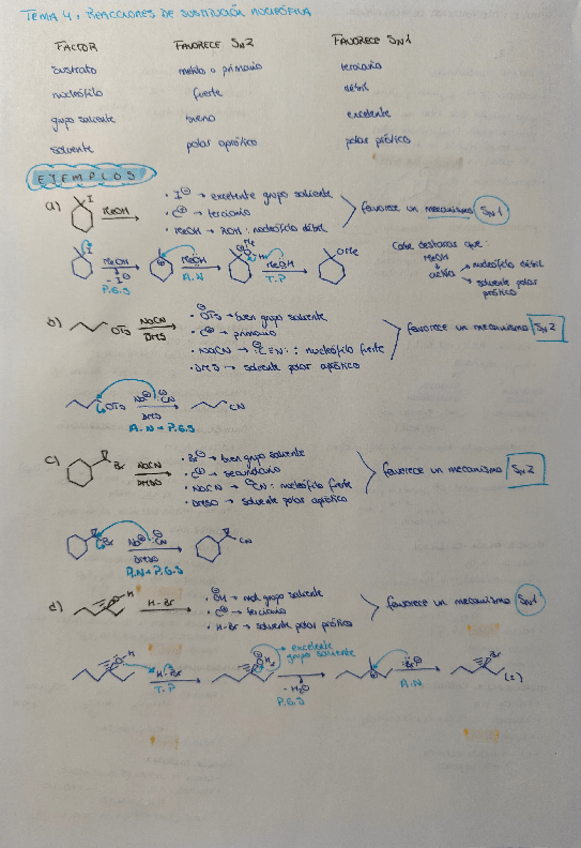 TEMA 4: REACCIONES DE SUSTITUCIÓN NUCLEÓFILA
FACTOR FAVORECE SN2 FAVORECE SN1
sustrato metilo o primario terciario
nucleófilo fuerte débil
grupo saliente bueno excelente
solvente polar aprótico polar prótico
EJEMPLOS
a) I MeOH
• I⊖ → excelente grupo saliente
• C⊕ → terciario
• MeOH → ROH: nucleófilo débil
favorece un mecanismo SN1
I MeOH - I⊖ P.G.S MeOH A.N OMe H MeOH T.P OMe
Cabe destacar que:
MeOH
actúa → nucleófilo débil
→ solvente polar prótico
b) OTs NaCN
• ⊖OTs → buen grupo saliente
• C⊕ → primario
• NaCN → ⊖:C≡N: : nucleófilo fuerte
• → solvente polar aprótico
favorece un mecanismo SN2
OTs Na⊕ :⊖CN CN
A.N + P.G.S
c) Br NaCN DMSO
• Br⊖ → buen grupo saliente
• C⊕ → secundario
• NaCN → ⊖CN: nucleófilo fuerte
• DMSO → solvente polar aprótico
favorece un mecanismo SN2
Br Na⊕ :⊖CN DMSO CN
A.N + P.G.S
d) O-H H-Br
• ⊖OH → mal grupo saliente
• C⊕ → terciario
• H-Br → solvente polar prótico
favorece un mecanismo SN1
→ excelente grupo saliente
O-H H-Br T.P - H2O P.G.S :Br:⊖ A.N Br